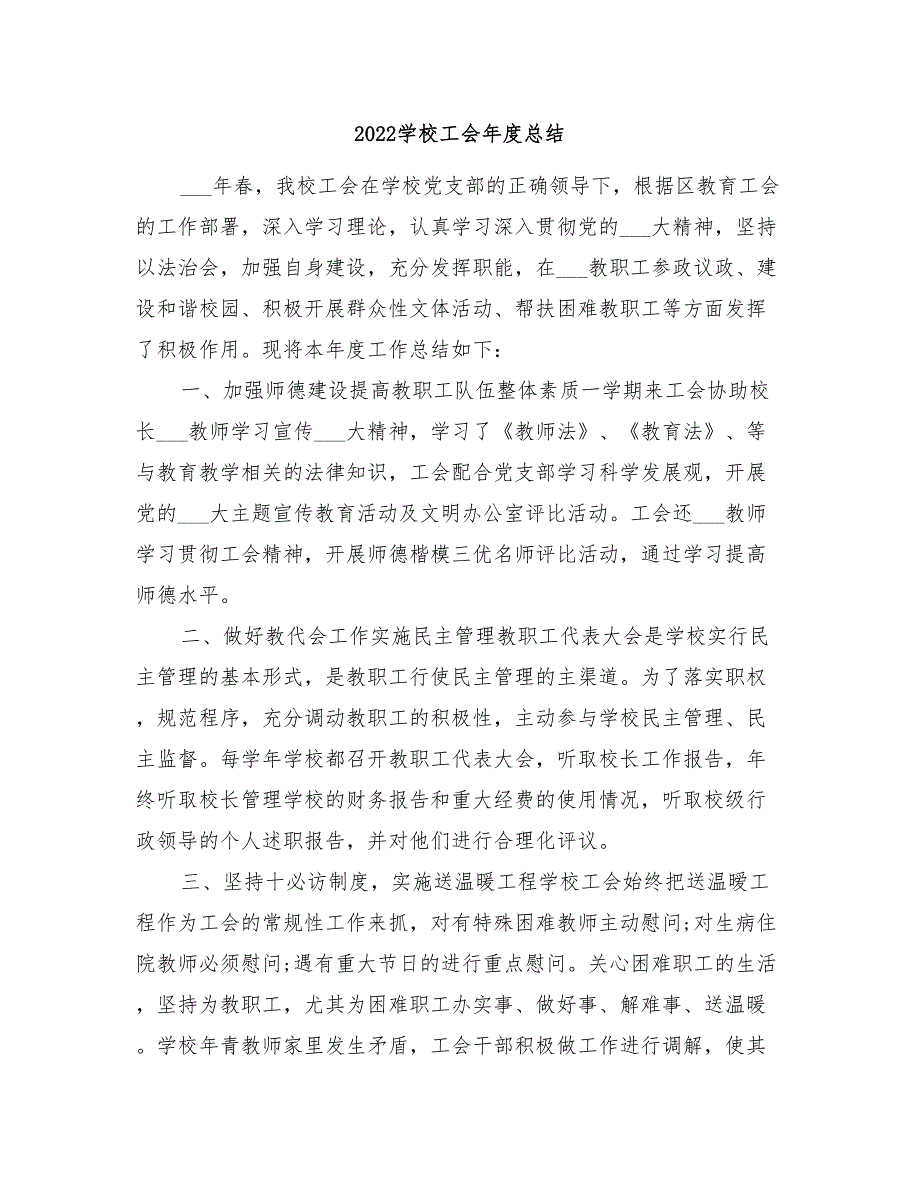 2022学校工会年度总结
___年春，我校工会在学校党支部的正确领导下，根据区教育工会
的工作部署，深入学习理论，认真学习深入贯彻党的___大精神，坚持
以法治会，加强自身建设，充分发挥职能，在___教职工参政议政、建
设和谐校园、积极开展群众性文体活动、帮扶困难教职工等方面发挥
了积极作用。现将本年度工作总结如下：
一、加强师德建设提高教职工队伍整体素质一学期来工会协助校
长___教师学习宣传___大精神，学习了《教师法》、《教育法》、等
与教育教学相关的法律知识，工会配合党支部学习科学发展观，开展
党的___大主题宣传教育活动及文明办公室评比活动。工会还___教师
学习贯彻工会精神，开展师德楷模三优名师评比活动，通过学习提高
师德水平。
二、做好教代会工作实施民主管理教职工代表大会是学校实行民
主管理的基本形式，是教职工行使民主管理的主渠道。为了落实职权
，规范程序，充分调动教职工的积极性，主动参与学校民主管理、民
主监督。每学年学校都召开教职工代表大会，听取校长工作报告，年
终听取校长管理学校的财务报告和重大经费的使用情况，听取校级行
政领导的个人述职报告，并对他们进行合理化评议。
三、坚持十必访制度，实施送温暖工程学校工会始终把送温暧工
程作为工会的常规性工作来抓，对有特殊困难教师主动慰问;对生病住
院教师必须慰问;遇有重大节日的进行重点慰问。关心困难职工的生活
，坚持为教职工，尤其为困难职工办实事、做好事、解难事、送温暖
。学校年青教师家里发生矛盾，工会干部积极做工作进行调解，使其